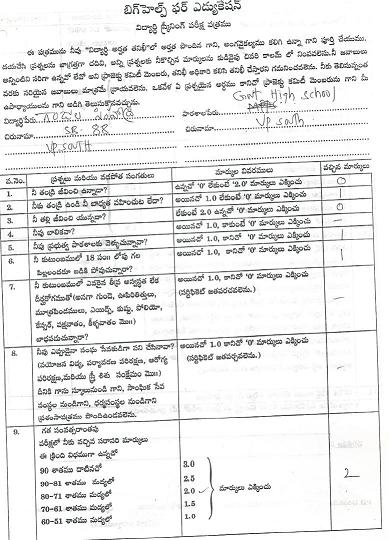 బిగ్‌హెల్ప్ ఫర్ ఎడ్యుకేషన్
విద్యార్థి స్క్రీనింగ్ పరీక్ష పత్రము
ఈ పత్రమును నీవు "విద్యార్థి అర్హత తనిఖీ"లో అర్హత పొందిన గాని, అంగవైకల్యము కలిగి ఉన్నా గాని పూర్తి చేయుము.
చదివి, అన్ని ప్రశ్నలకు నీకొచ్చిన మార్కులను కుడివైపు చివరి కాలమ్ లో నింపవలెను. నీ జవాబులు
అన్నింటిని సరిగా ఉన్నవో లేవో అని ప్రాజెక్టు కమిటీ మెంబరు, తనిఖీ అధికారి కలసి తనిఖీ చేస్తారని గమనించవలెను. నీకు తెలిసినంత
వరకు సరియైన జవాబులు మాత్రమే వ్రాయవలెను. ఒకవేళ ఏ ప్రశ్నయైన అర్థము కానిచో ప్రాజెక్టు కమిటీ మెంబరును గాని మీ
ఉపాధ్యాయులను గాని అడిగి తెలుసుకొనవచ్చును.
Govt High School
విద్యార్థిపేరు
పాఠశాలపేరు
SR. 8R
చిరునామా VP South
చిరునామా
VP South
ప.నెం. ప్రశ్నలు మరియు వడపోత సంగతులు మార్కుల వివరములు వచ్చిన మార్కులు
1. నీ తండ్రి జీవించి ఉన్నాడా? ఉన్నచో '0' లేకుంటే '2.0' మార్కులు ఎక్కించు 0
2. నీకు తండ్రి ఉండి నీ బాధ్యత వహించుట లేదా? అయినచో 1.0 లేకుంటే '0' మార్కులు ఎక్కించు 1
3. నీ తల్లి జీవించి యున్నదా? లేకుంటే 2.0 ఉన్నచో '0' మార్కులు ఎక్కించు 0
4. నీవు బాలికవా? అయినచో 1.0, కాకుంటే '0' మార్కులు ఎక్కించు –
5. నీవు ప్రభుత్వ పాఠశాలకు వెళ్ళుచున్నావా? అయినచో 1.0, కానిచో '0' మార్కులు ఎక్కించు 1
6. నీ కుటుంబములో 18 సం॥ లోపు గల అయినచో 1.0, కానిచో '0' మార్కులు ఎక్కించు 1
పిల్లలందరూ బడికి పోవుచున్నారా?
7. నీ కుటుంబములో ఎవరైన తీవ్ర అస్వస్థత లేక అయినచో 1.0, కానిచో '0' మార్కులు ఎక్కించు –
దీర్ఘరోగముతో (అనగా గుండె, ఊపిరితిత్తులు, (సర్టిఫికెట్ జతపరచవలెను.)
మూత్రపిండములు, ఎయిడ్స్, కుష్టు, పోలియో,
కేన్సర్, పక్షవాతం, కీళ్ళవాతం మొ॥)
బాధపడుచున్నారా?
8. నీవు ఎప్పుడైనా సంఘ సేవకుడిగా పని చేసినావా? అయినచో 1.0 కానిచో '0' మార్కులు ఎక్కించు
(వయోజన విద్య, పర్యావరణ పరిరక్షణ, ఆరోగ్య (సర్టిఫికెట్ జతపర్చవలెను.)
పరిరక్షణ, మరియు స్త్రీ శిశు సంక్షేమం మొ॥)
దీనికి గాను స్కూలునుండి గాని, సాంఘిక సేవ
సంస్థల నుండిగాని, ధర్మసంస్థల నుండిగాని
ప్రశంసాపత్రము పొందిఉండవలెను.
9. గత సంవత్సరాంతపు
పరీక్షలో నీకు వచ్చిన సరాసరి మార్కులు
ఈ క్రింది విధముగా ఉన్నచో
90 శాతము దాటినచో 3.0
90-81 శాతము మధ్యలో 2.5
80-71 శాతము మధ్యలో 2.0 మార్కులు ఎక్కించు 2
70-61 శాతము మధ్యలో 1.5
60-51 శాతము మధ్యలో 1.0